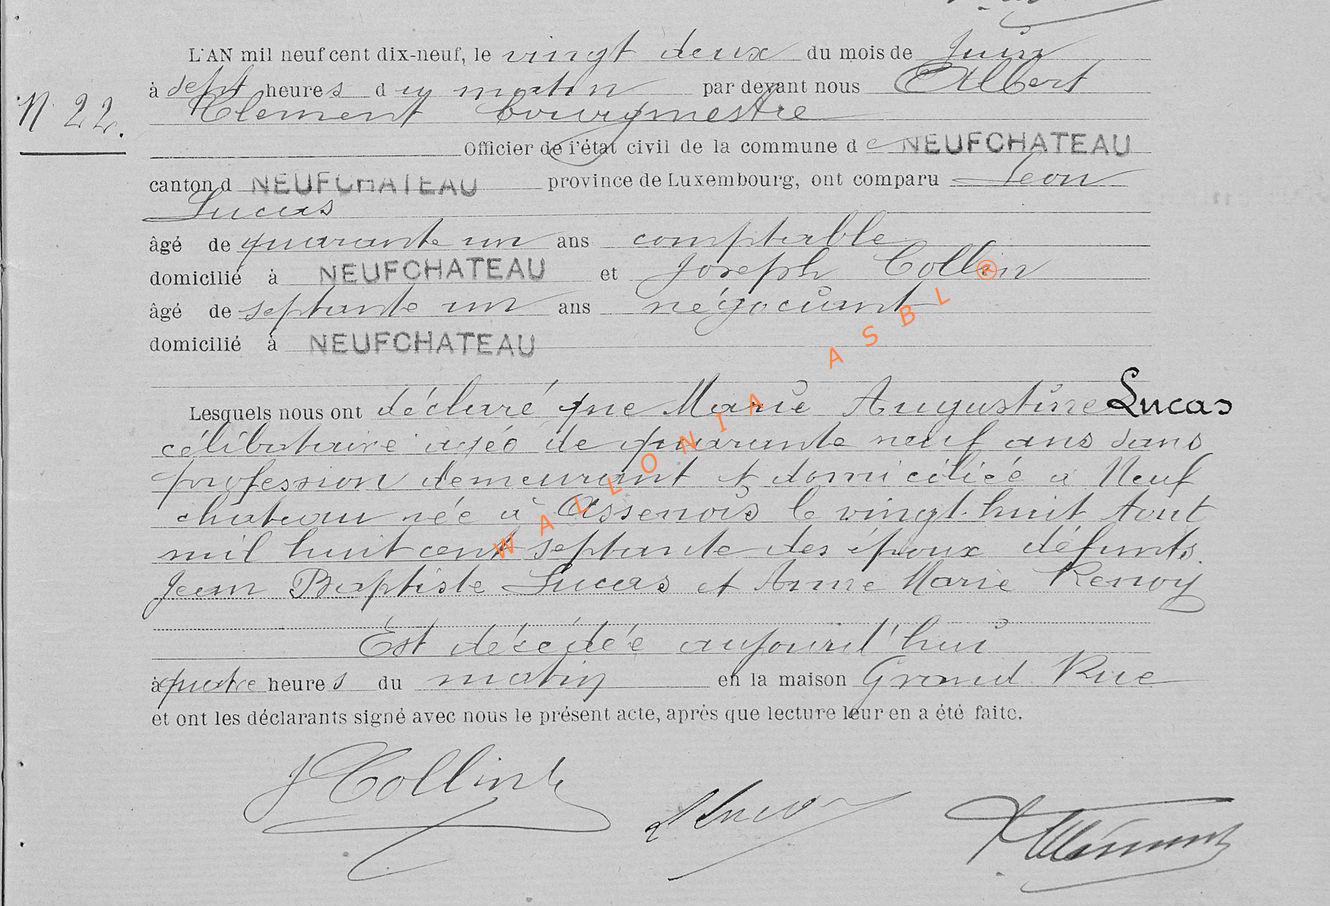 L'AN mil neuf cent dix-neuf, le vingt deux du mois de Juin
à sept heures du matin par devant nous Albert
N 22.
Clement bourgmestre
Officier de l'état civil de la commune de NEUFCHATEAU
canton d NEUFCHATEAU province de Luxembourg, ont comparu Leon
Lucas
âgé de quarante un ans comptable
domicilié à NEUFCHATEAU et Joseph Collin
âgé de septante un ans négociant
domicilié à NEUFCHATEAU
Lesquels nous ont déclaré que Marie Augustine Lucas
célibataire agée de quarante neuf ans sans
profession demeurant et domiciliée à Neuf
chateau née à Assenois le vingt-huit Aout
mil huit cent septante des époux défunts
Jean Baptiste Lucas et Anne Marie Renoy
Est décédée aujourd'hui
à quatre heures du matin en la maison Grand Rue
et ont les déclarants signé avec nous le présent acte, après que lecture leur en a été faite.
J Collin L Lucas A Clément
WALLONIA ASBL ®